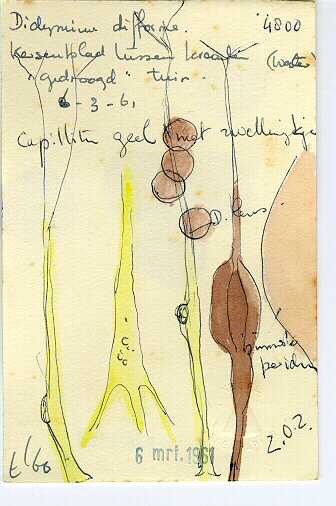 Didymium difforme. 4800
Kersenblad tussen kranten (water)
"gedroogd" tuin.
6-3-61
Capillitia geel met zwellingkje
D. Kers.
binnenste
peridium
Z.O.Z.
6 mrt. 1961